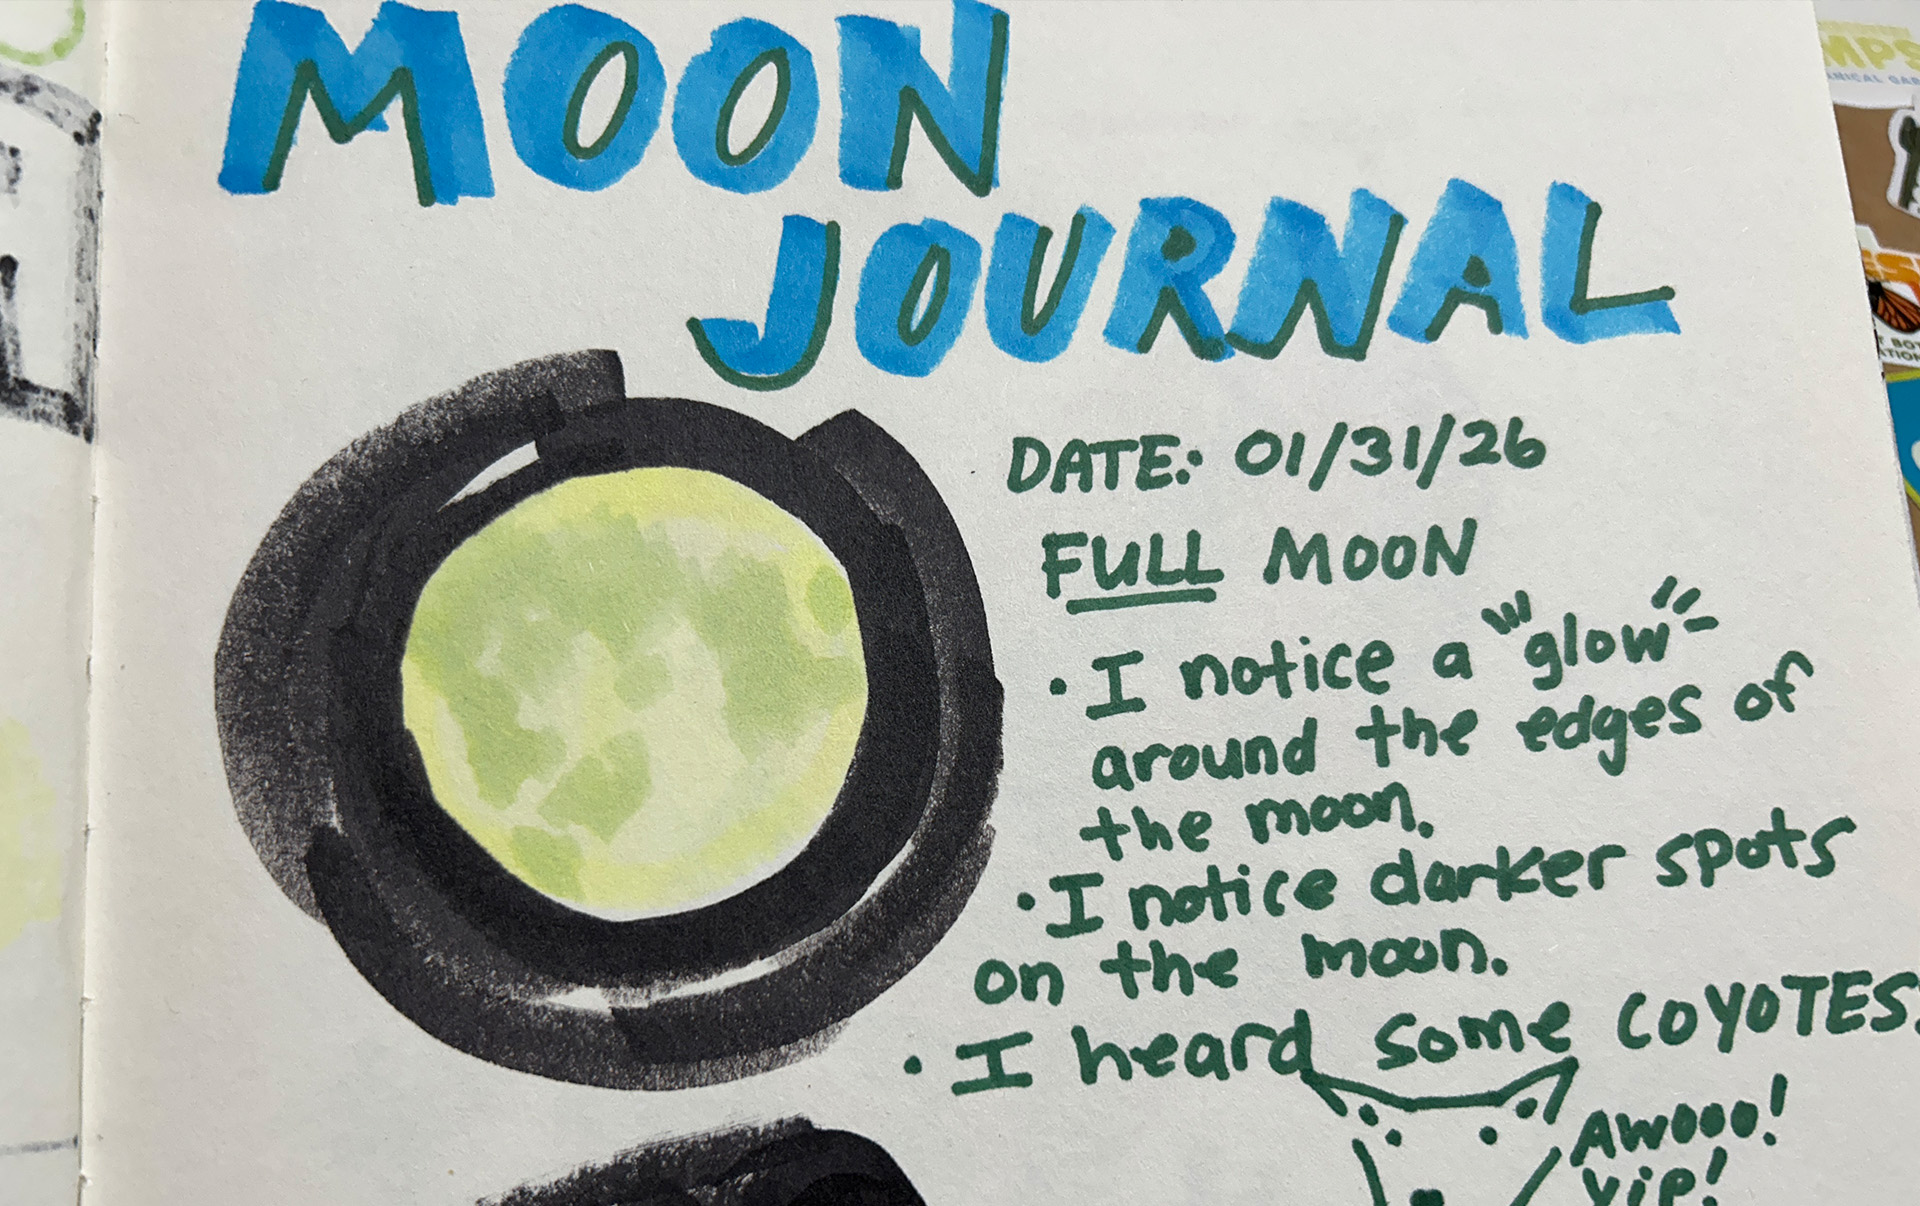 MOON
JOURNAL
DATE: 01/31/26
FULL MOON
• I notice a "glow"
around the edges of
the moon.
• I notice darker spots
on the moon.
• I heard some COYOTES
AWOOO!
YIP!
MPS
ANICAL GAR
ES
T BOT
ATION